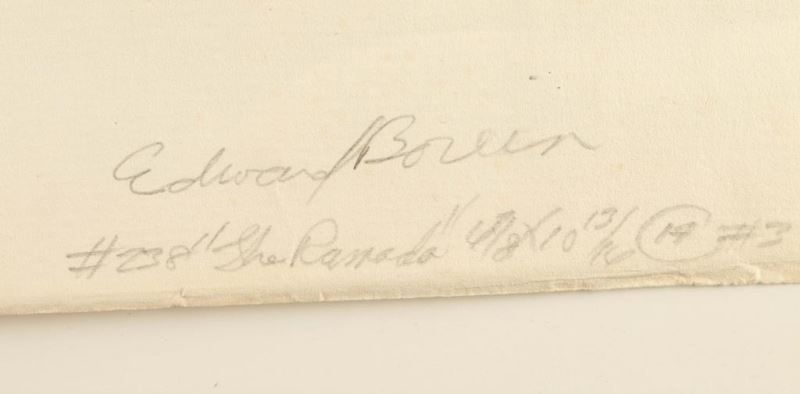 Edward Borein
#238 "The Ramada" 4 7/8 X 10 13/16 (14) #3